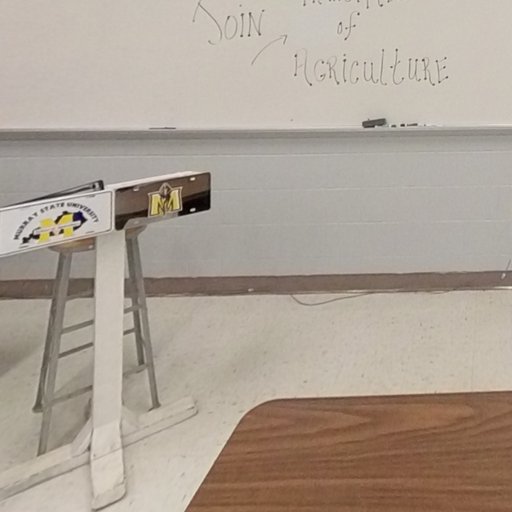 Join
of
Agriculture
MURRAY STATE UNIVERSITY
M
M